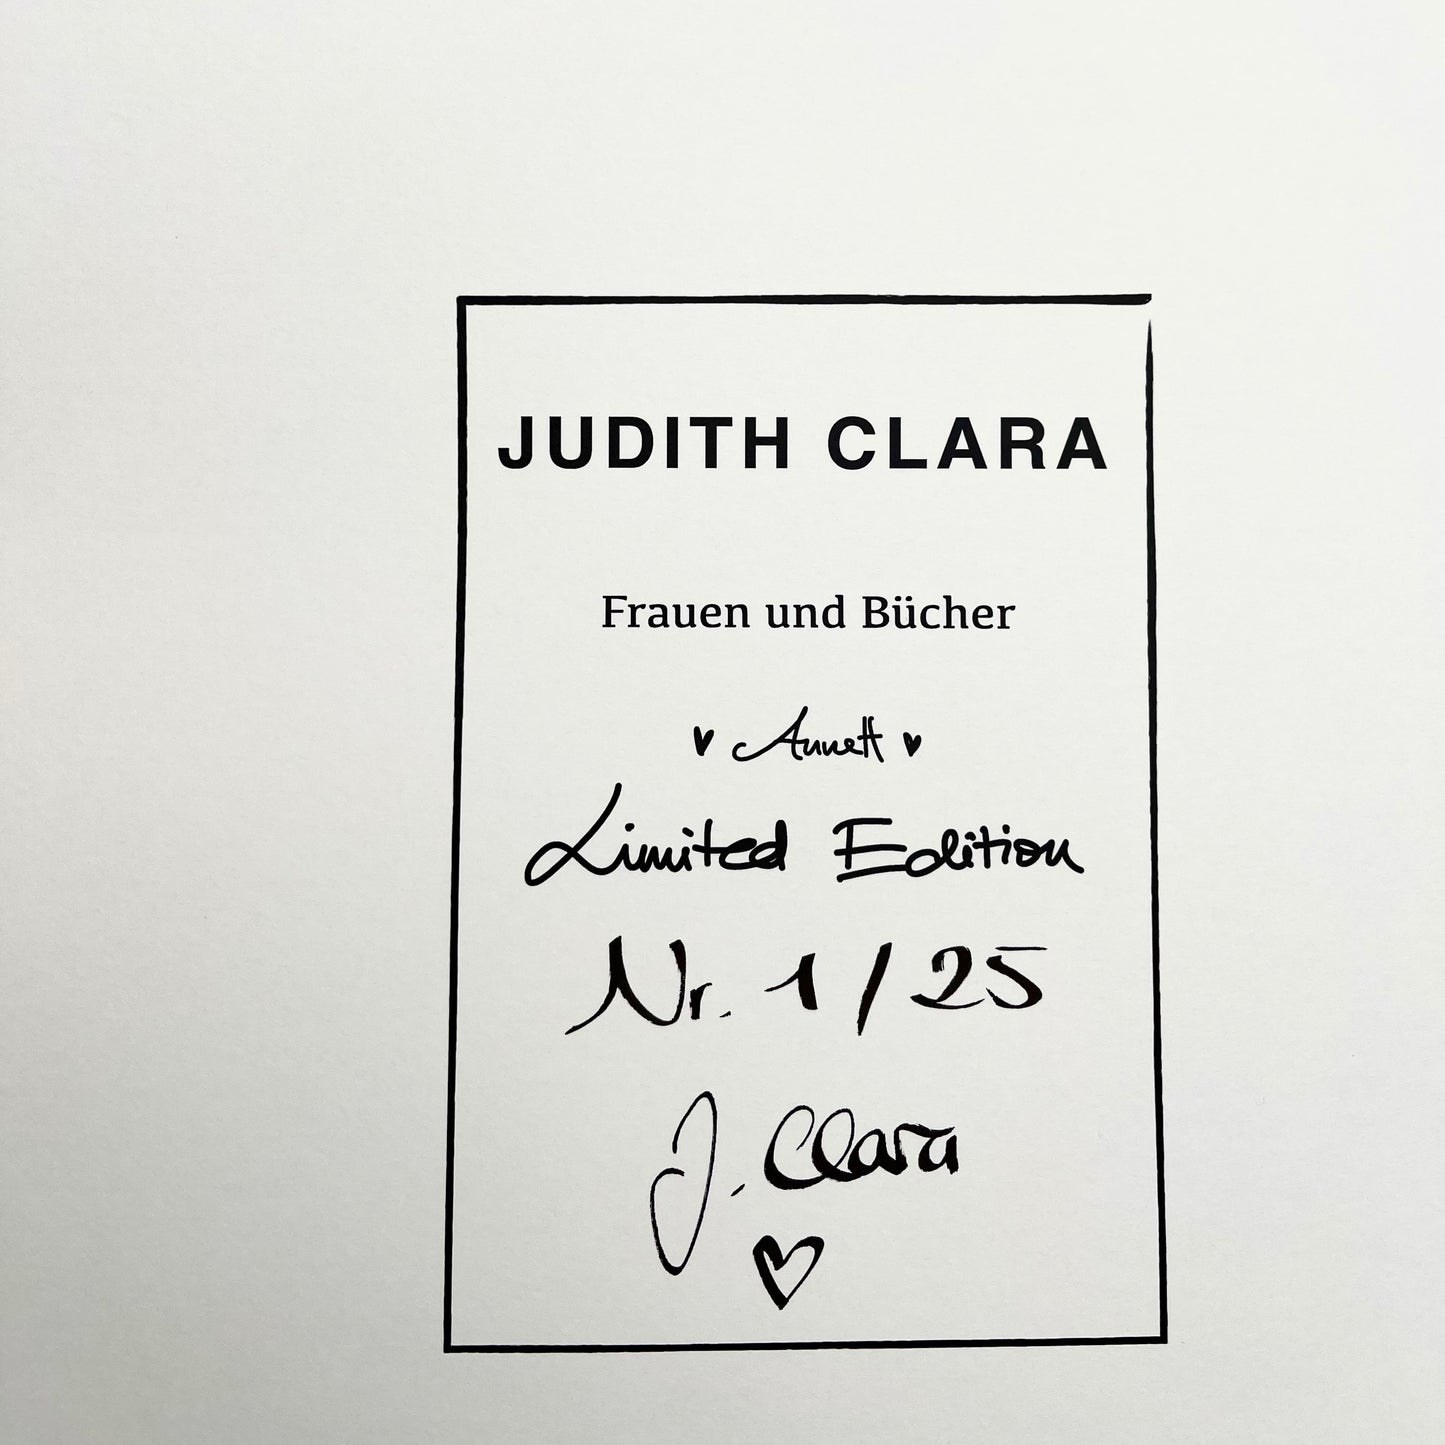 JUDITH CLARA
Frauen und Bücher
♥ Annett ♥
Limited Edition
Nr. 1/25
J. Clara
♥